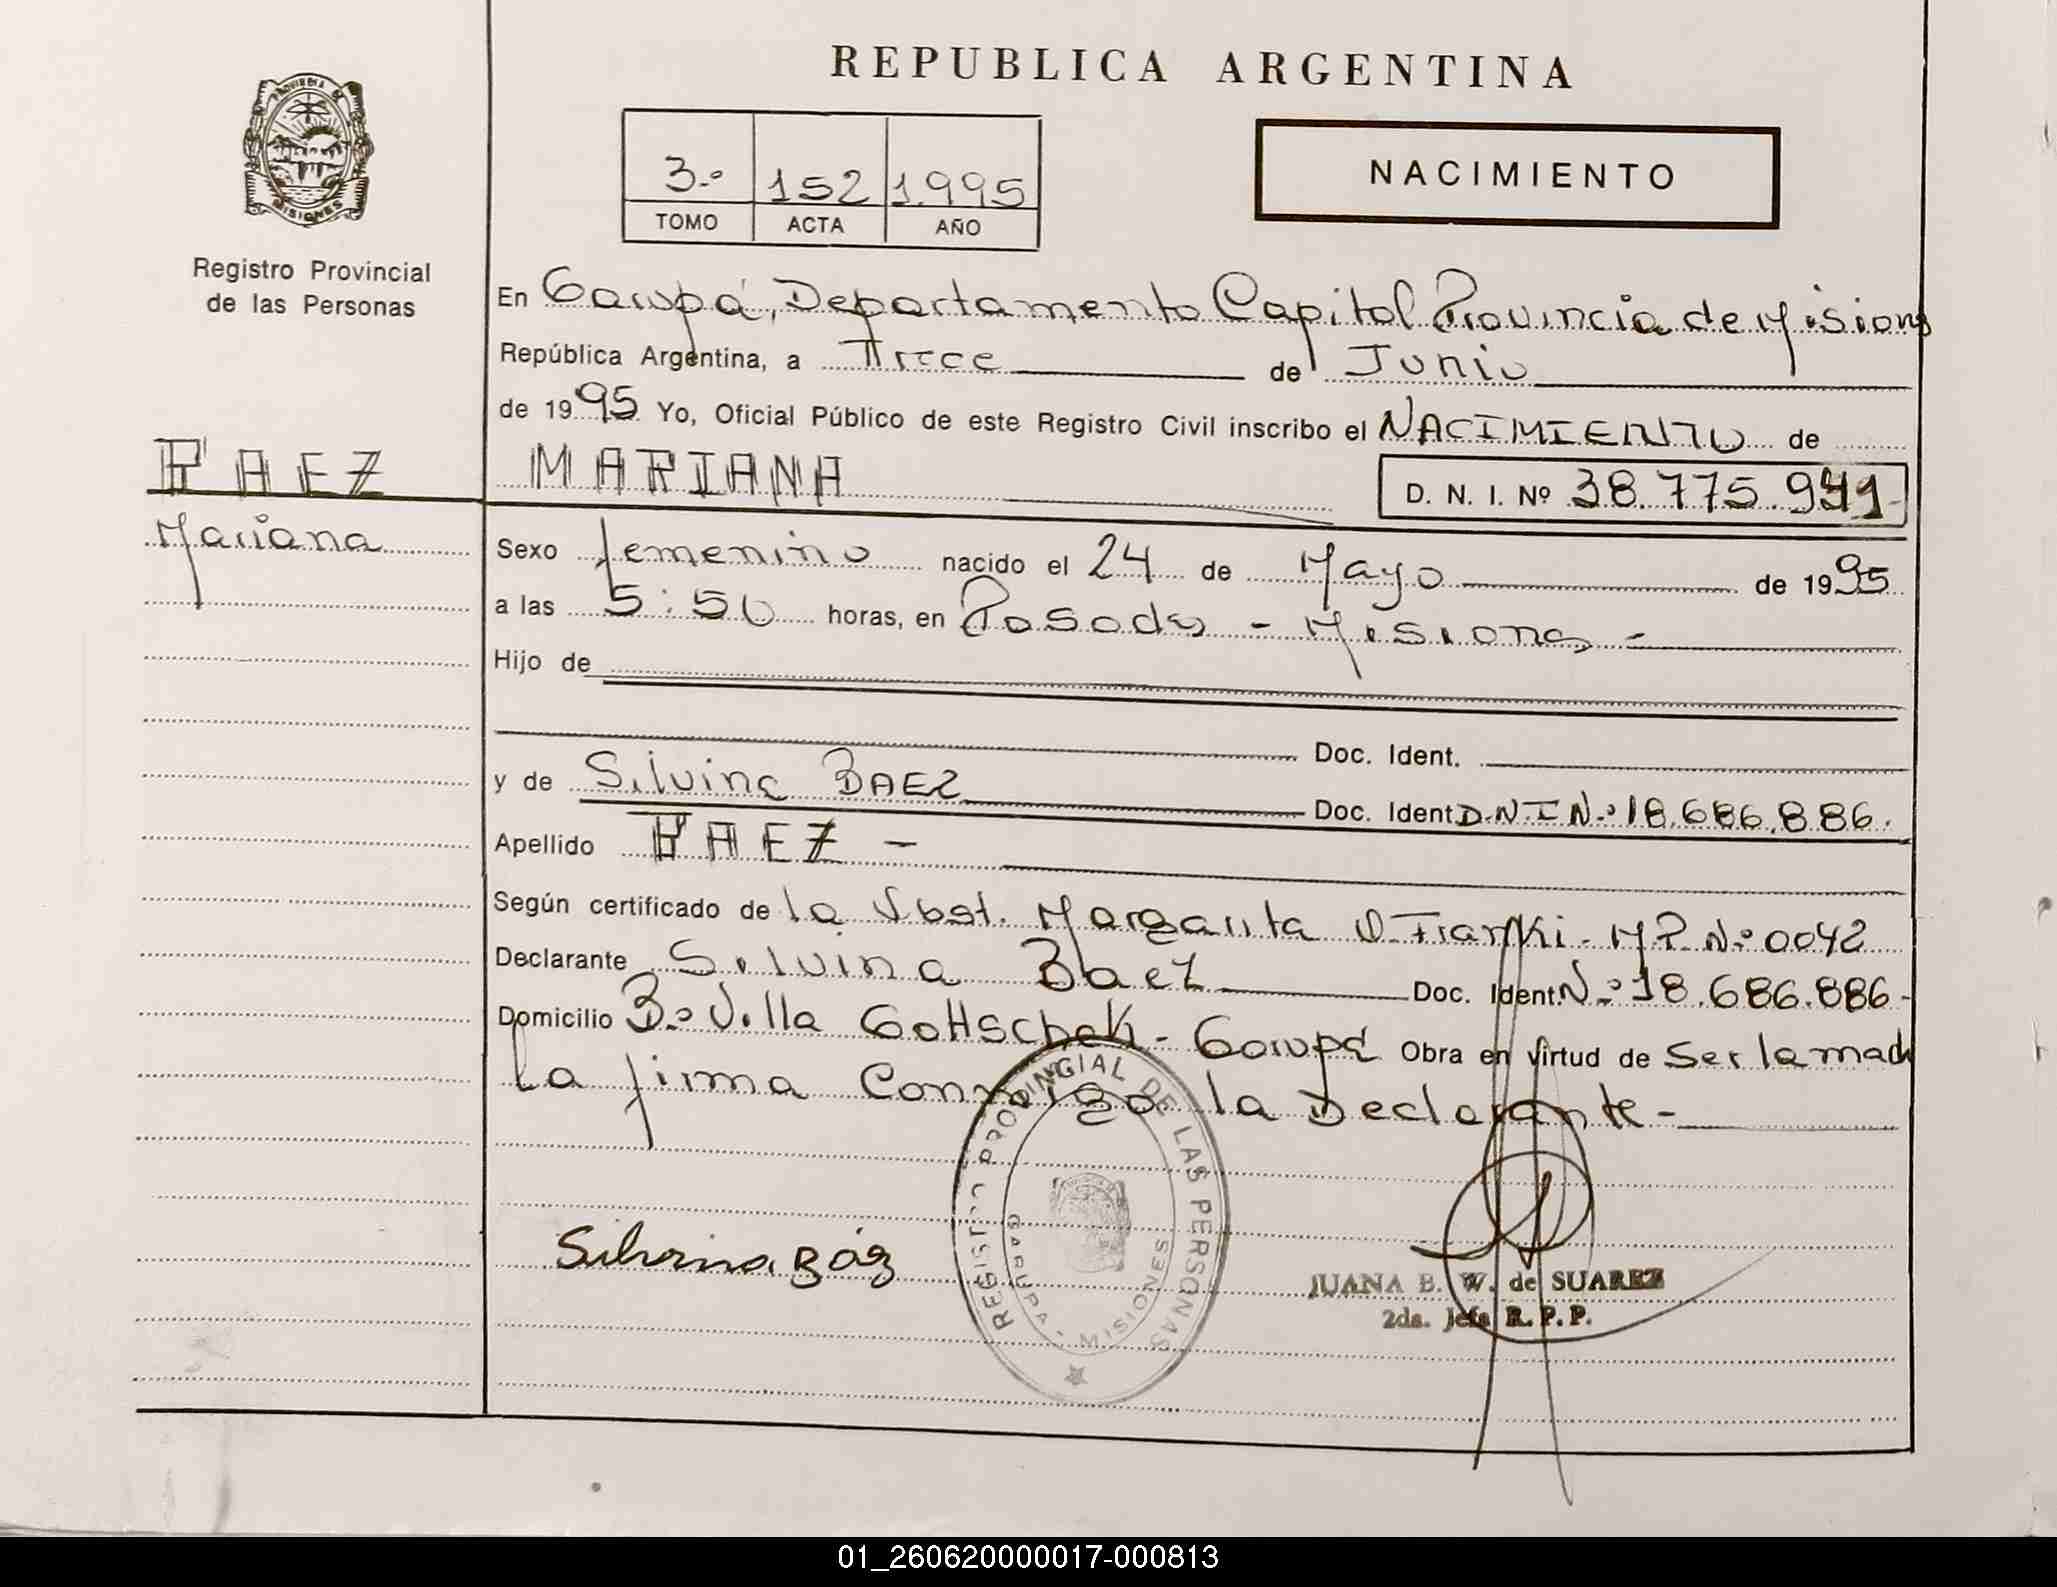 REPUBLICA ARGENTINA
PROVINCIA DE
MISIONES
Registro Provincial
de las Personas
3.º 152 1.995
TOMO ACTA AÑO
NACIMIENTO
En Garupá, Departamento Capital Provincia de Misiones
República Argentina, a Trece de Junio
de 1995 Yo, Oficial Público de este Registro Civil inscribo el NACIMIENTO de
BAEZ
MARIANA
D. N. I. Nº 38.775.941-
Mariana
Sexo femenino nacido el 24 de Mayo de 1995
a las 5:50 horas, en Posadas - Misiones -
Hijo de
Doc. Ident.
y de Silvina BAEZ Doc. Ident D.N.I N.º 18.686.886.
Apellido BAEZ -
Según certificado de la Obst. Margarita O. M.P. N.º 0042
Declarante Silvina Baez Doc. Ident. N.º 18.686.886-
Domicilio B.º Villa Gottschek - Garupá Obra en virtud de Ser la madre
La firma Conmigo la Declarante -
REGISTRO PROVINCIAL DE LAS PERSONAS
GARUPA - MISIONES
Silvina Báez
JUANA B. W. de SUAREZ
2da. Jefa R. P. P.
01_260620000017-000813